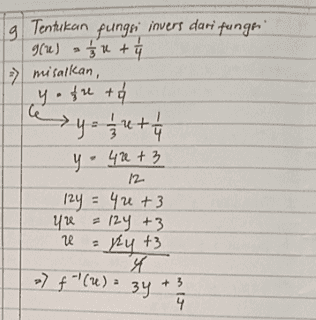 9 Tentukan fungsi invers dari fungsi
g(x) = 1/3 x + 1/4
=> misalkan,
y = 1/3 x + 1/4
↳ y = 1/3 x + 1/4
y = 4x + 3 / 12
12y = 4x + 3
4x = 12y + 3
x = 12y + 3 / 4
=> f⁻¹(x) = 3y + 3/4